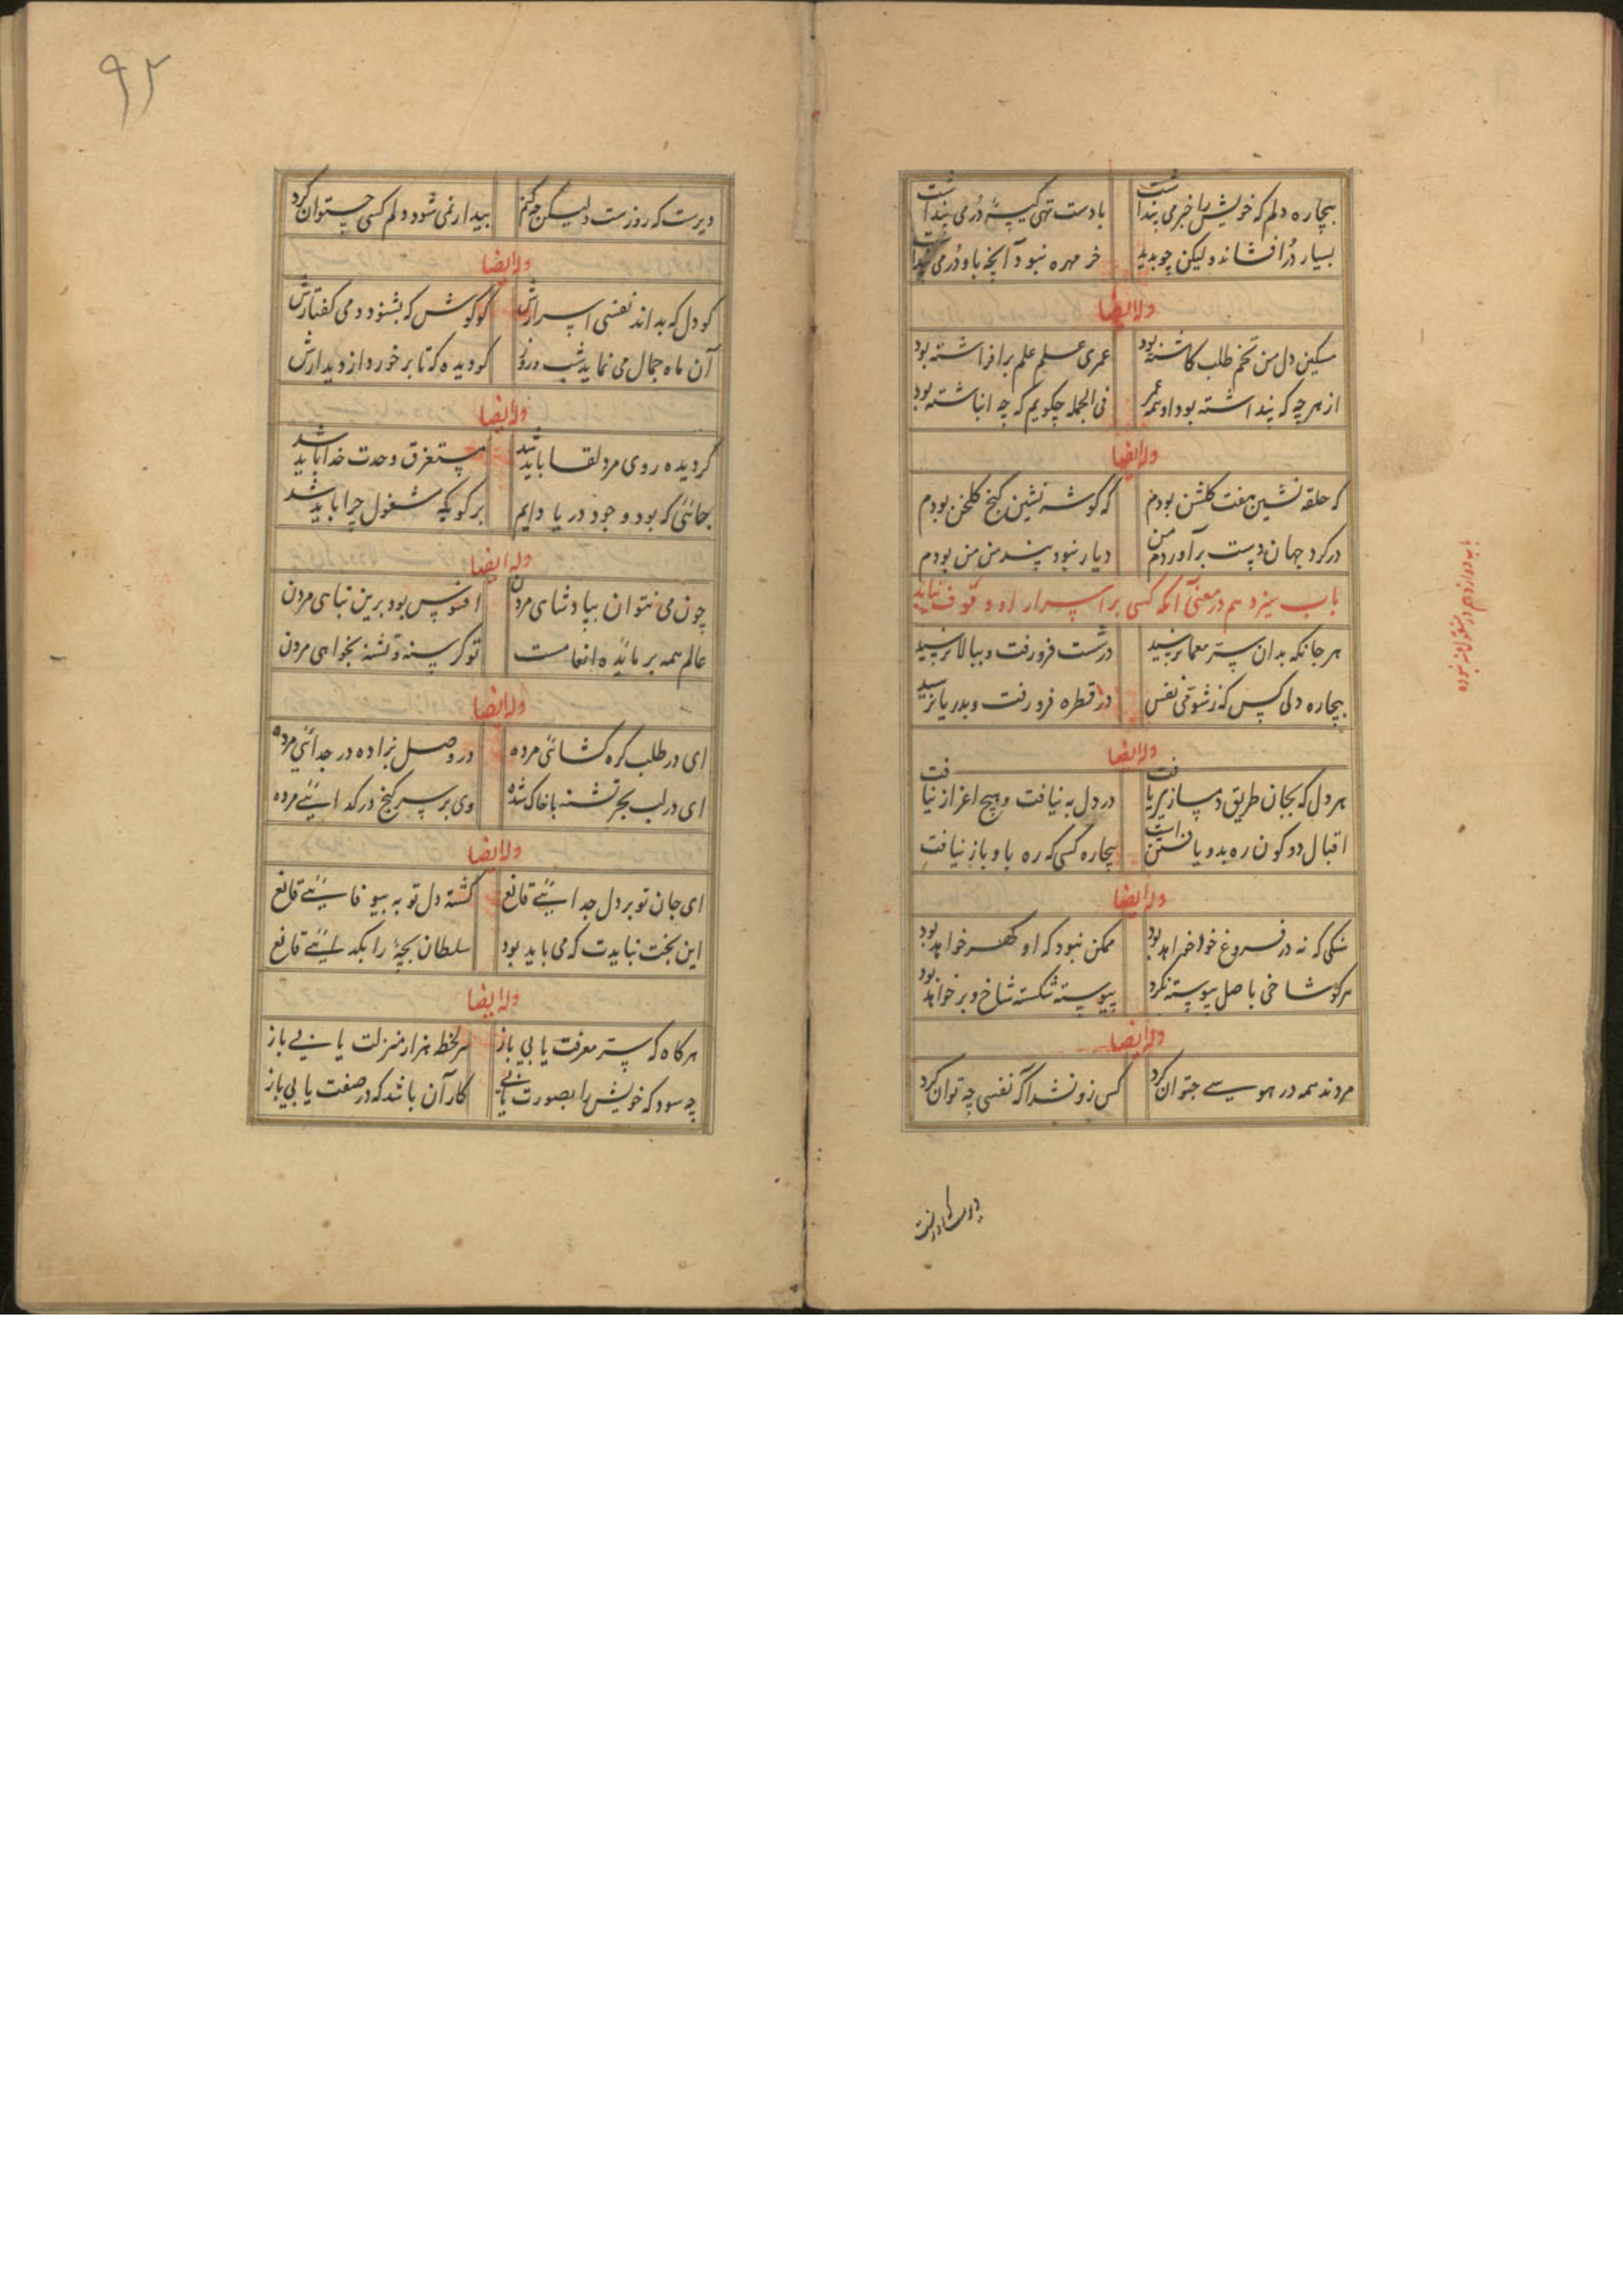 بیچاره دلم که خویش را خبر می پنداشت با دست تهی کیسهٔ دُر می پنداشت
بسیار دُر افشاند ولیکن چو بدید خر مهره نبود آنچه با او دُر می پنداشت
وله ایضا
مسکین دل من تخم طلب کاشته بود عمری علم علم برافراشته بود
از هرچه که پنداشته بود او همه عمر فی الجمله چکویم که چه انباشته بود
وله ایضا
که حلقه نشین هفت کلشن بودم که کوشه نشین کنج کلخن بودم
در کرد جهان دست برآوردم من دیار نبود من من بودم
باب سیزدهم در معنی آنکه کسی بر اسرار او وقوف نیابد
هر جا نکه بدان سر معما نرسید در شست فرو رفت و ببالا نرسید
بیچاره دلی کس که ز شوقی نفس در قطره فرو رفت و بدریا نرسید
وله ایضا
هر دل که بجان طریق دمسازی یافت در دل به نیافت و هیچ اعزاز نیافت
اقبال دو کون ره بدو یافتن است بیچاره کسی که ره باو باز نیافت
وله ایضا
سنکی که نه در فروغ خواهد بود ممکن نبود که او کهر خواهد بود
هر کو شاخی با صل پیوسته نکرد پیوسته شکسته شاخ و بر خواهد بود
وله ایضا
مردند همه در هوسی چتوان کرد کس زو نشد اکه نفسی چه توان کرد
دیرست که روزست ولیکن چه کنم بیدار نمی شود دلم کسی چتوان کرد
وله ایضا
کو دل که بداند نفسی اسرارش کو کوش که بشنود دمی کفتارش
آن ماه جمال می نماید شب و روز کو دیده که تا برخورد از دیدارش
وله ایضا
کر دیده روی مرد لقا باید شد مستغرق وحدت خدا باید شد
جائی که بود وجود دریا دایم بر کو بچه مشغول چرا باید شد
وله ایضا
چون می نتوان بپادشاهی مردن افسوس بود برین تباهی مردن
عالم همه بر مائدهٔ انعامست تو کرسنه و تشنه بخواهی مردن
وله ایضا
ای در طلب کره کشائی مرده در وصل بزاده در جدائی مرده
ای در لب بحر تشنه با خاک شده وی بر سر کنج در کدائی مرده
وله ایضا
ای جان تو بر دل جدائی قانع کشته دل تو به بیوفائی قانع
این بخت نبایدت که می باید بود سلطان بچهٔ را بکدائی قانع
وله ایضا
هر کاه که سر معرفت یابی باز هر لحظ هزار منزلت یابی باز
چه سود که خویش را بصورت یابی کار آن باشد که در صفت یابی باز
دیرست که روزست
۹۲